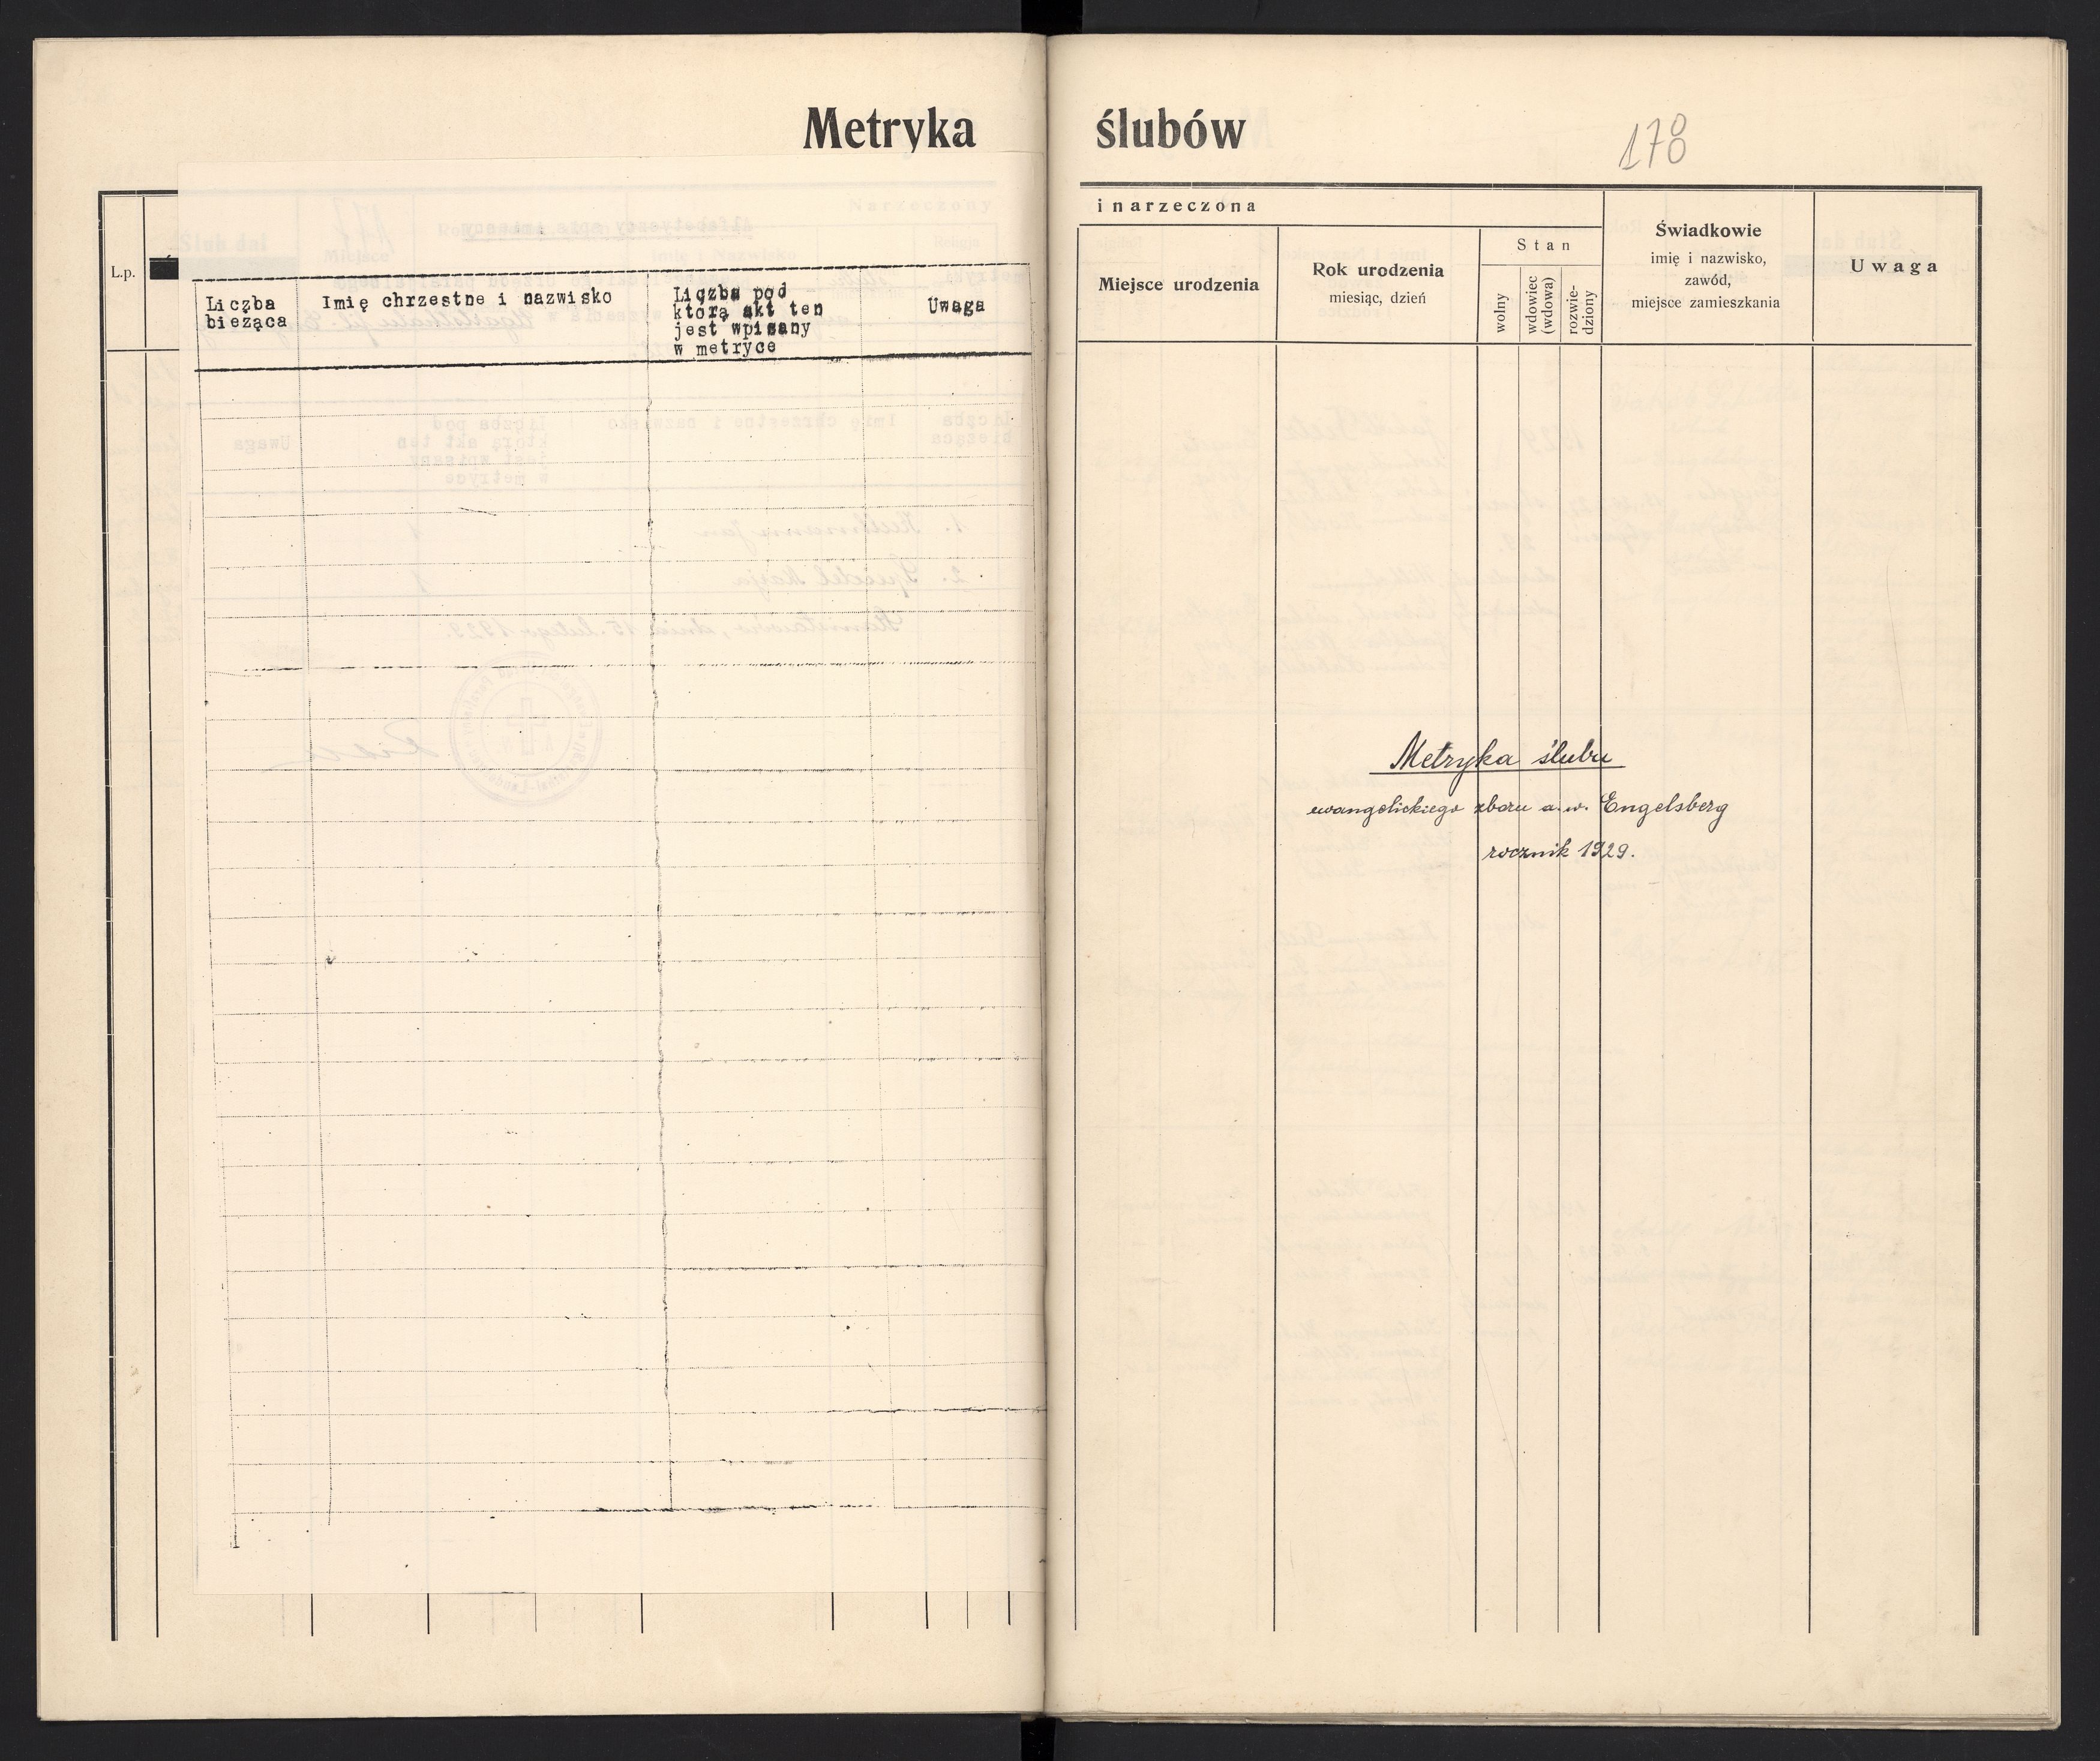 Metryka ślubów
178
L.p.
Liczba
bieząca
Imię chrzestne i nazwisko
Liczba pod
którą akt ten
jest wpisany
w metryce
Uwaga
i narzeczona
Miejsce urodzenia
Rok urodzenia
miesiąc, dzień
Stan
wolny
wdowiec
(wdowa)
rozwie-
dziony
Świadkowie
imię i nazwisko,
zawód,
miejsce zamieszkania
Uwaga
Metryka ślubu
ewangelickiego zboru a. w. Engelsberg
rocznik 1929.